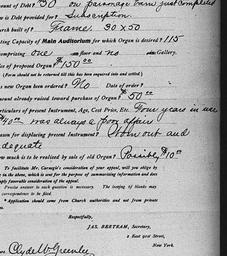 Amount of Debt? $50 on parsonage barn just completed
is Debt provided for? Subscription
Church built of? Frame: 30 x 50
Seating Capacity of Main Auditorium for which Organ is desired? 115
comprising one floor and no Gallery.
Price of proposed Organ? $150.00
(Form should not be returned till this has been enquired into and settled)
a new Organ been ordered? No Date of order?
amount already raised toward purchase of Organ? $50.00
Particulars of present Instrument, Age, Cost Price, Etc. Four years in use
$40.00 was always a poor affair
Reason for displacing present Instrument? Worn out and
adequate
How much is to be realized by sale of old Organ? Possibly $10.00
To facilitate Mr. Carnegie's consideration of this appeal, will you oblige by
in the above, which is sent for the purpose of summarizing information and does
imply favorable consideration of the appeal.
Precise answer to each question is necessary. The inking of blanks may
correspondence to be filed.
* Application should come from Church authorities and not from private
Respectfully,
JAS. BERTRAM, Secretary,
2 East 91st Street,
New York.
Clyde W Greenlee